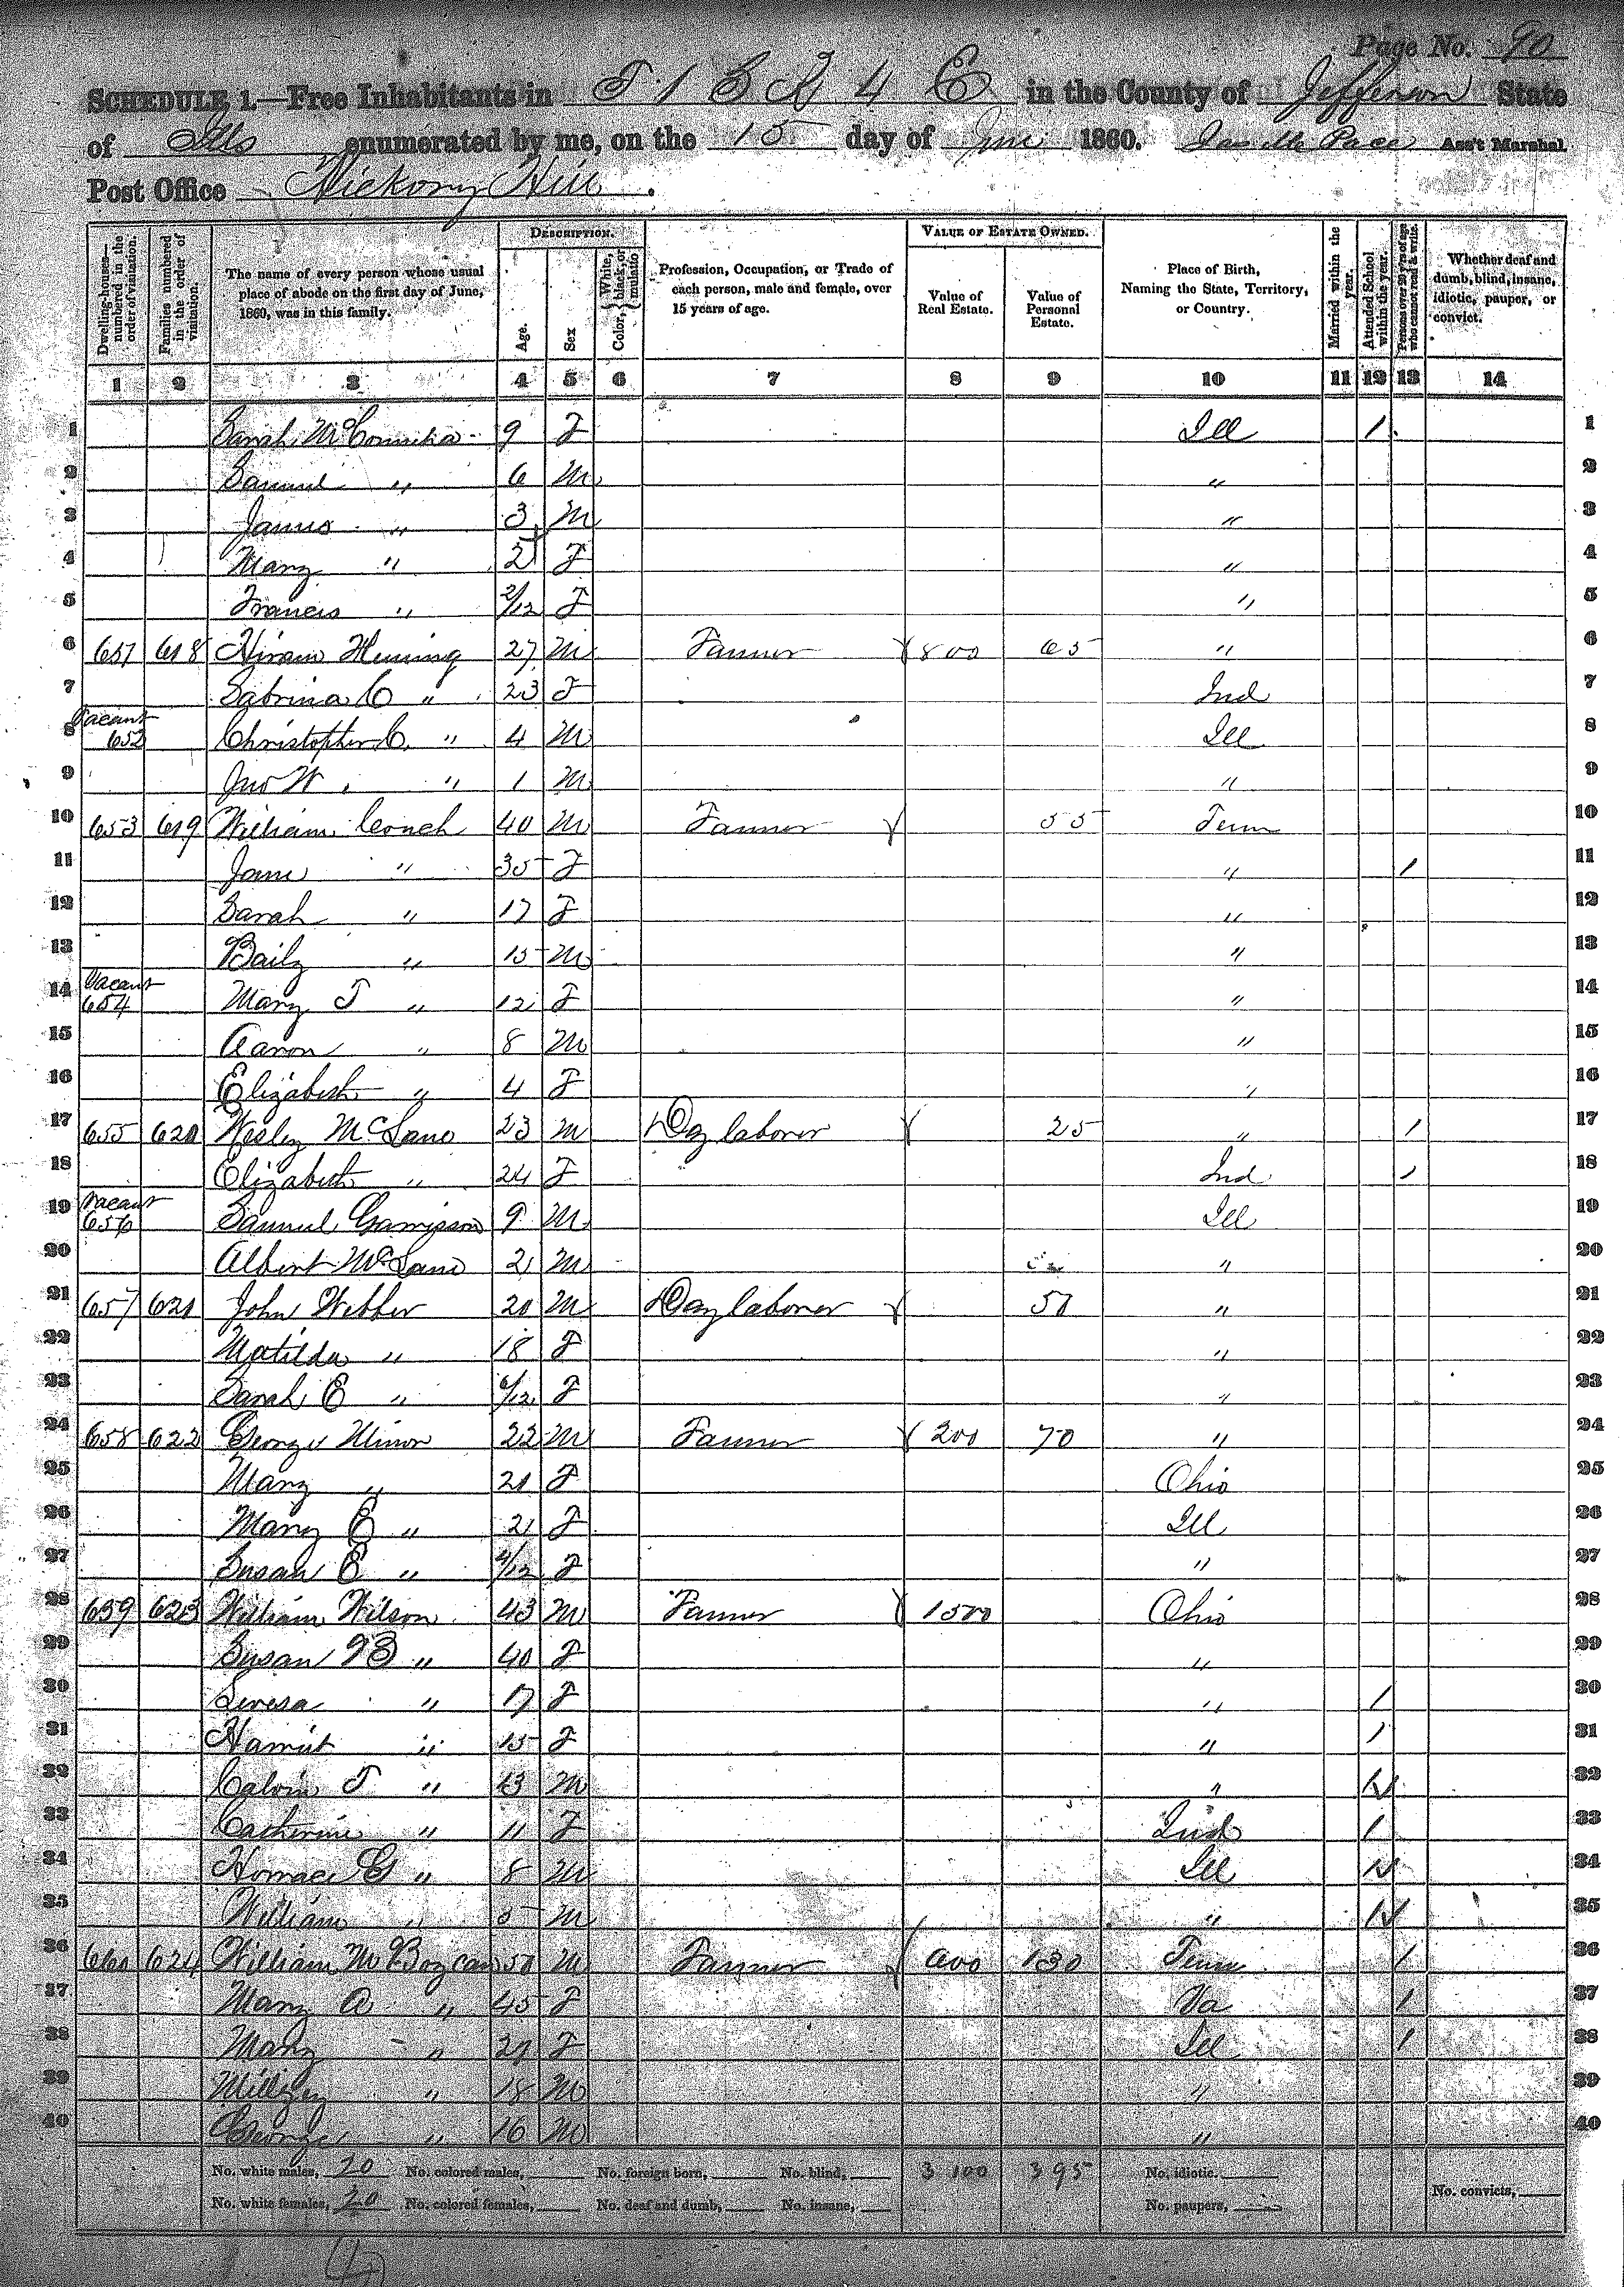 Page No. 90
SCHEDULE 1.—Free Inhabitants in T 1 S R 4 E in the County of Jefferson State
of Ills enumerated by me, on the 15 day of June 1860. Pace Ass't Marshal
Post Office Hickory Hill.
Dwelling-houses—numbered in the order of visitation.
Families numbered in the order of visitation.
The name of every person whose usual place of abode on the first day of June, 1860, was in this family.
DESCRIPTION.
Age.
Sex
Color, { White, black, or mulatto
Profession, Occupation, or Trade of each person, male and female, over 15 years of age.
VALUE OF ESTATE OWNED.
Value of Real Estate.
Value of Personal Estate.
Place of Birth, Naming the State, Territory, or Country.
Married within the year.
Attended School within the year.
Persons over 20 y'rs of age who cannot read & write.
Whether deaf and dumb, blind, insane, idiotic, pauper, or convict.
1 2 3 4 5 6 7 8 9 10 11 12 13 14
1 Sarah 9 F Ill 1 1
2 Samuel " 6 M " 2
3 James " 3 M " 3
4 Mary " 2 F " 4
5 Francis " 2/12 F " 5
6 651 618 Hiram 27 M Farmer 800 65 " 6
7 Sabrina C " 23 F Ind 7
8 Vacant 652 Christopher C. " 4 M Ill 8
9 Jno W. " 1 M " 9
10 653 619 William Couch 40 M Farmer 55 Tenn 10
11 Jane " 35 F " 1 11
12 Sarah " 17 F " 12
13 Baily " 15 M " 13
14 Vacant 654 Mary J " 12 F " 14
15 Aaron " 8 M " 15
16 Elizabeth " 4 F " 16
17 655 620 Wesley McLane 23 M Day laborer 25 " 1 17
18 Elizabeth " 24 F Ind 1 18
19 Vacant 656 Samuel Garrison 9 M Ill 19
20 Albert McLane 2 M " 20
21 657 621 John Webber 20 M Day laborer 50 " 21
22 Matilda " 18 F " 22
23 Sarah E " 6/12 F " 23
24 658 622 George Minor 22 M Farmer 200 70 " 24
25 Mary " 20 F Ohio 25
26 Mary E " 2 F Ill 26
27 Susan E " 4/12 F " 27
28 659 623 William Wilson 43 M Farmer 1500 Ohio 28
29 Susan B " 40 F " 29
30 " 17 F " 1 30
31 Harriet " 15 F " 1 31
32 Calvin J " 13 M " 1 32
33 Catherine " 11 F Ind 1 33
34 Horace G " 8 M Ill 1 34
35 William " 5 M " 1 35
36 660 624 William M 50 M Farmer 600 130 Tenn 1 36
37 Mary A " 45 F Va 1 37
38 Mary " 20 F Ill 1 38
39 " 18 M " 39
40 George " 16 M " 40
No. white males, 20 No. colored males, No. foreign born, No. blind, 3100 395 No. idiotic.
No. white females, 20 No. colored females, No. deaf and dumb, No. insane, No. paupers, No. convicts,